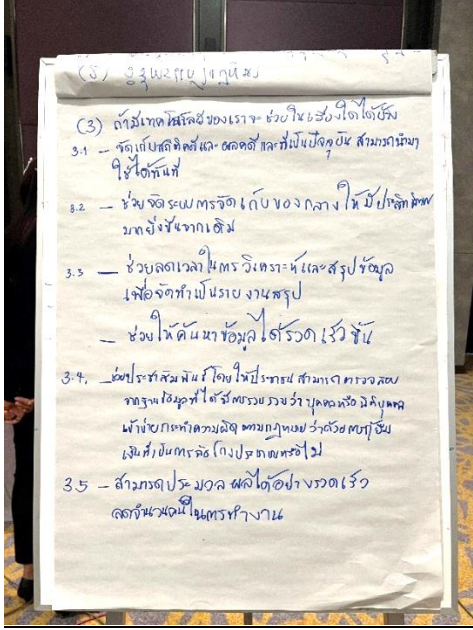 (3) ถ้ามีเทคโนโลยีของเราจะช่วยในเรื่องใดได้บ้าง
3.1 – จัดเก็บสถิติคดีและผลคดี และที่เป็นปัจจุบัน สามารถนำมา
ใช้ได้ทันที
3.2 – ช่วยจัดระบบการจัดเก็บของกลางให้มีประสิทธิภาพ
มากยิ่งขึ้นจากเดิม
3.3 – ช่วยลดเวลาในการวิเคราะห์และสรุปข้อมูล
เพื่อจัดทำเป็นรายงานสรุป
– ช่วยให้ค้นหาข้อมูลได้รวดเร็วขึ้น
3.4. – ช่วยประชาสัมพันธ์ โดยให้ประชาชนสามารถตรวจสอบ
จากฐานข้อมูลที่ได้มีการรวบรวมว่า บุคคลหรือนิติบุคคล
เข้าข่ายกระทำความผิดตามกฎหมายว่าด้วยการกู้ยืม
เงินที่เป็นการฉ้อโกงประชาชนหรือไม่
3.5 – สามารถประมวลผลได้อย่างรวดเร็ว
ลดจำนวนคนในการทำงาน